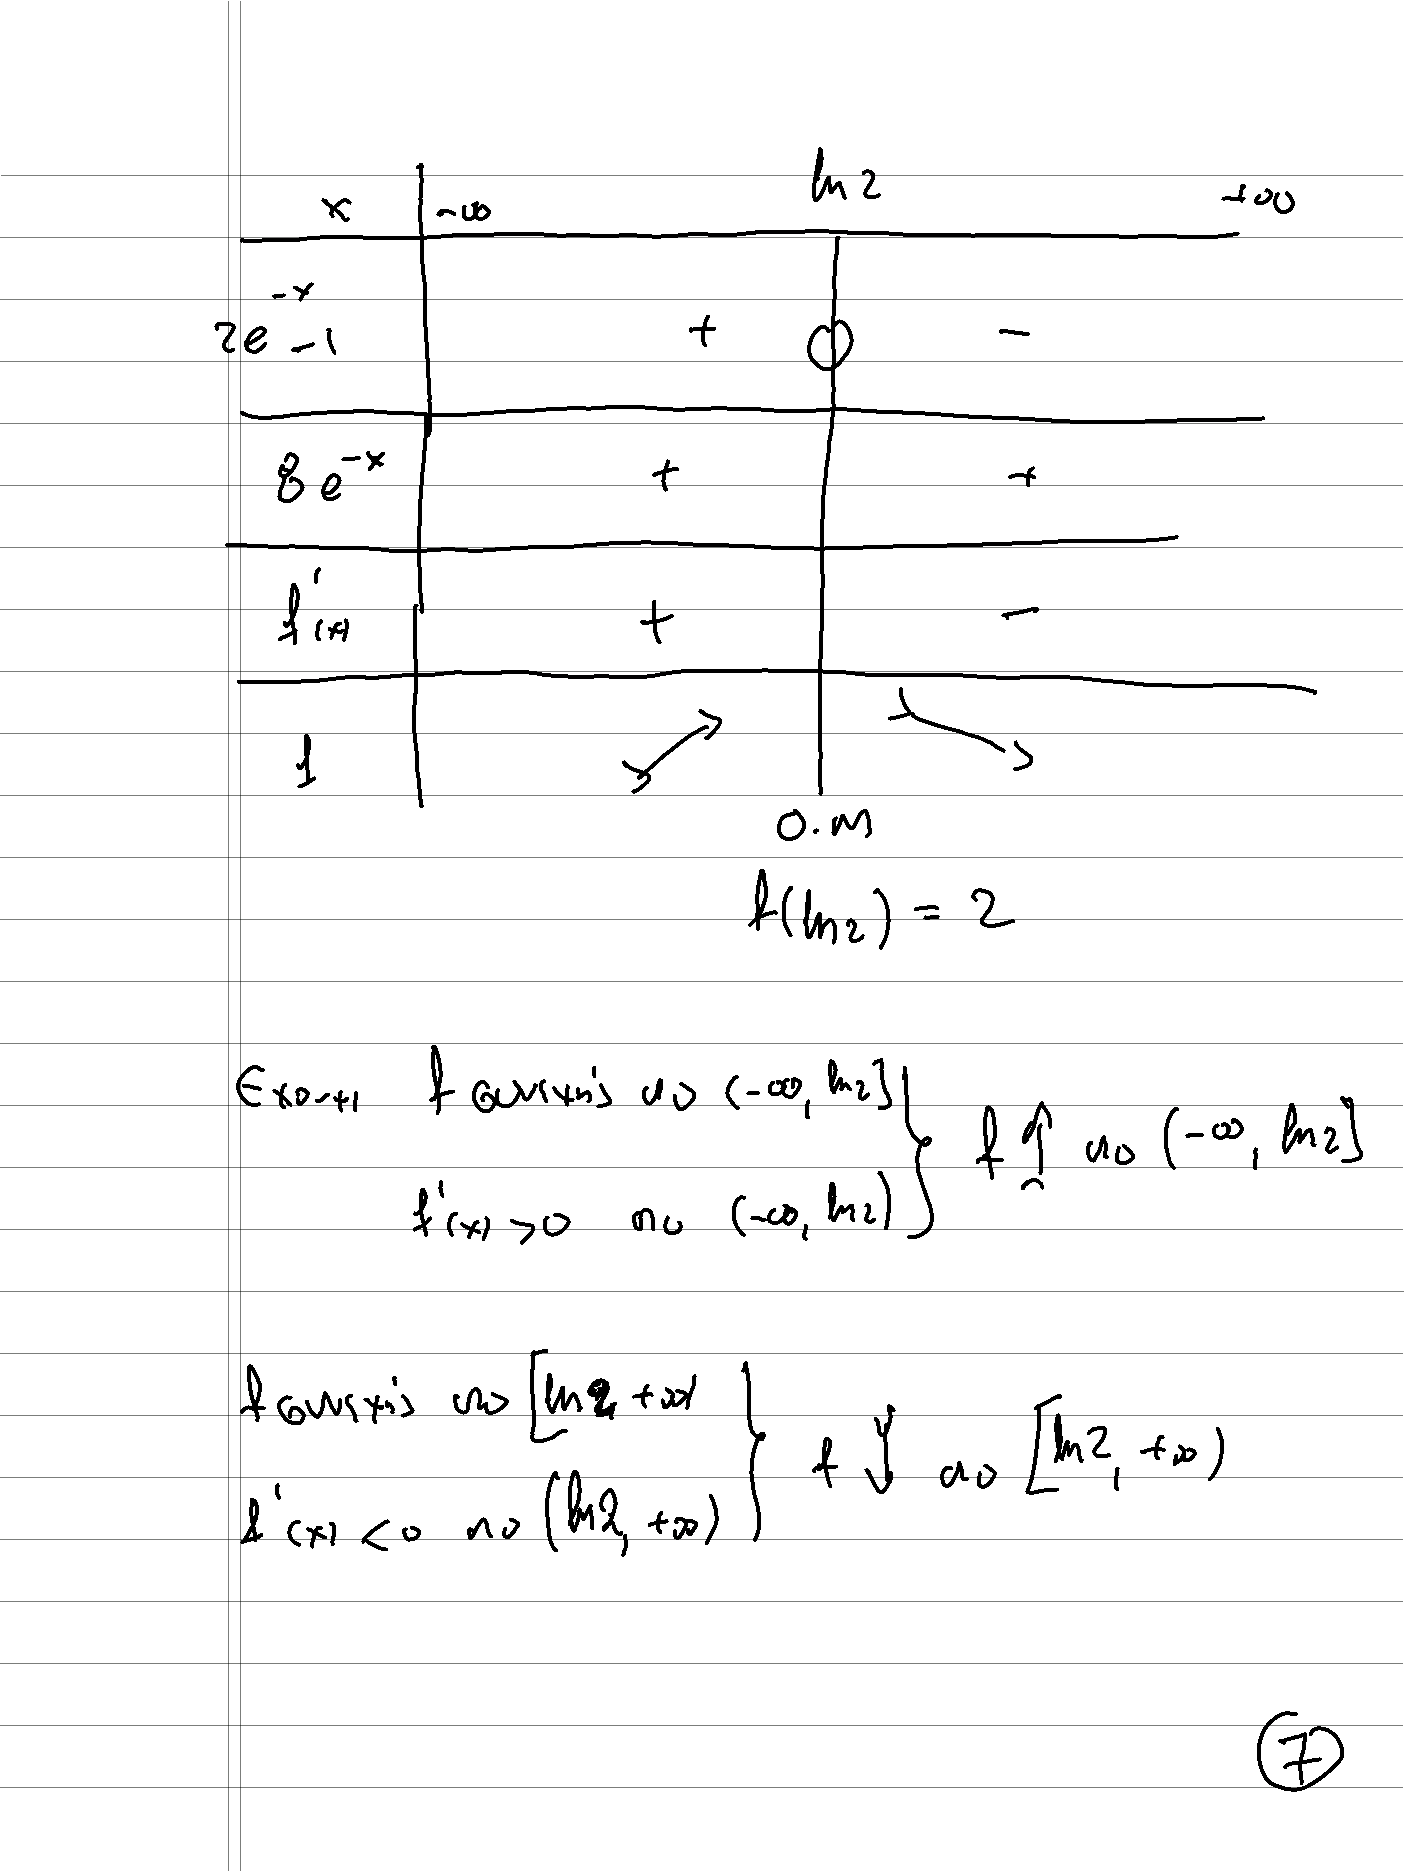 x -∞ ln2 +∞
2e^{-x}-1 + 0 -
8e^{-x} + +
f'(x) + -
f ↗ ↘
O.M
f(ln2) = 2
Έχουμε f συνεχής στο (-∞, ln2] } f ↑ στο (-∞, ln2]
f'(x) >0 στο (-∞, ln2)
f συνεχής στο [ln2, +∞) } f ↓ στο [ln2, +∞)
f'(x) <0 στο (ln2, +∞)
7